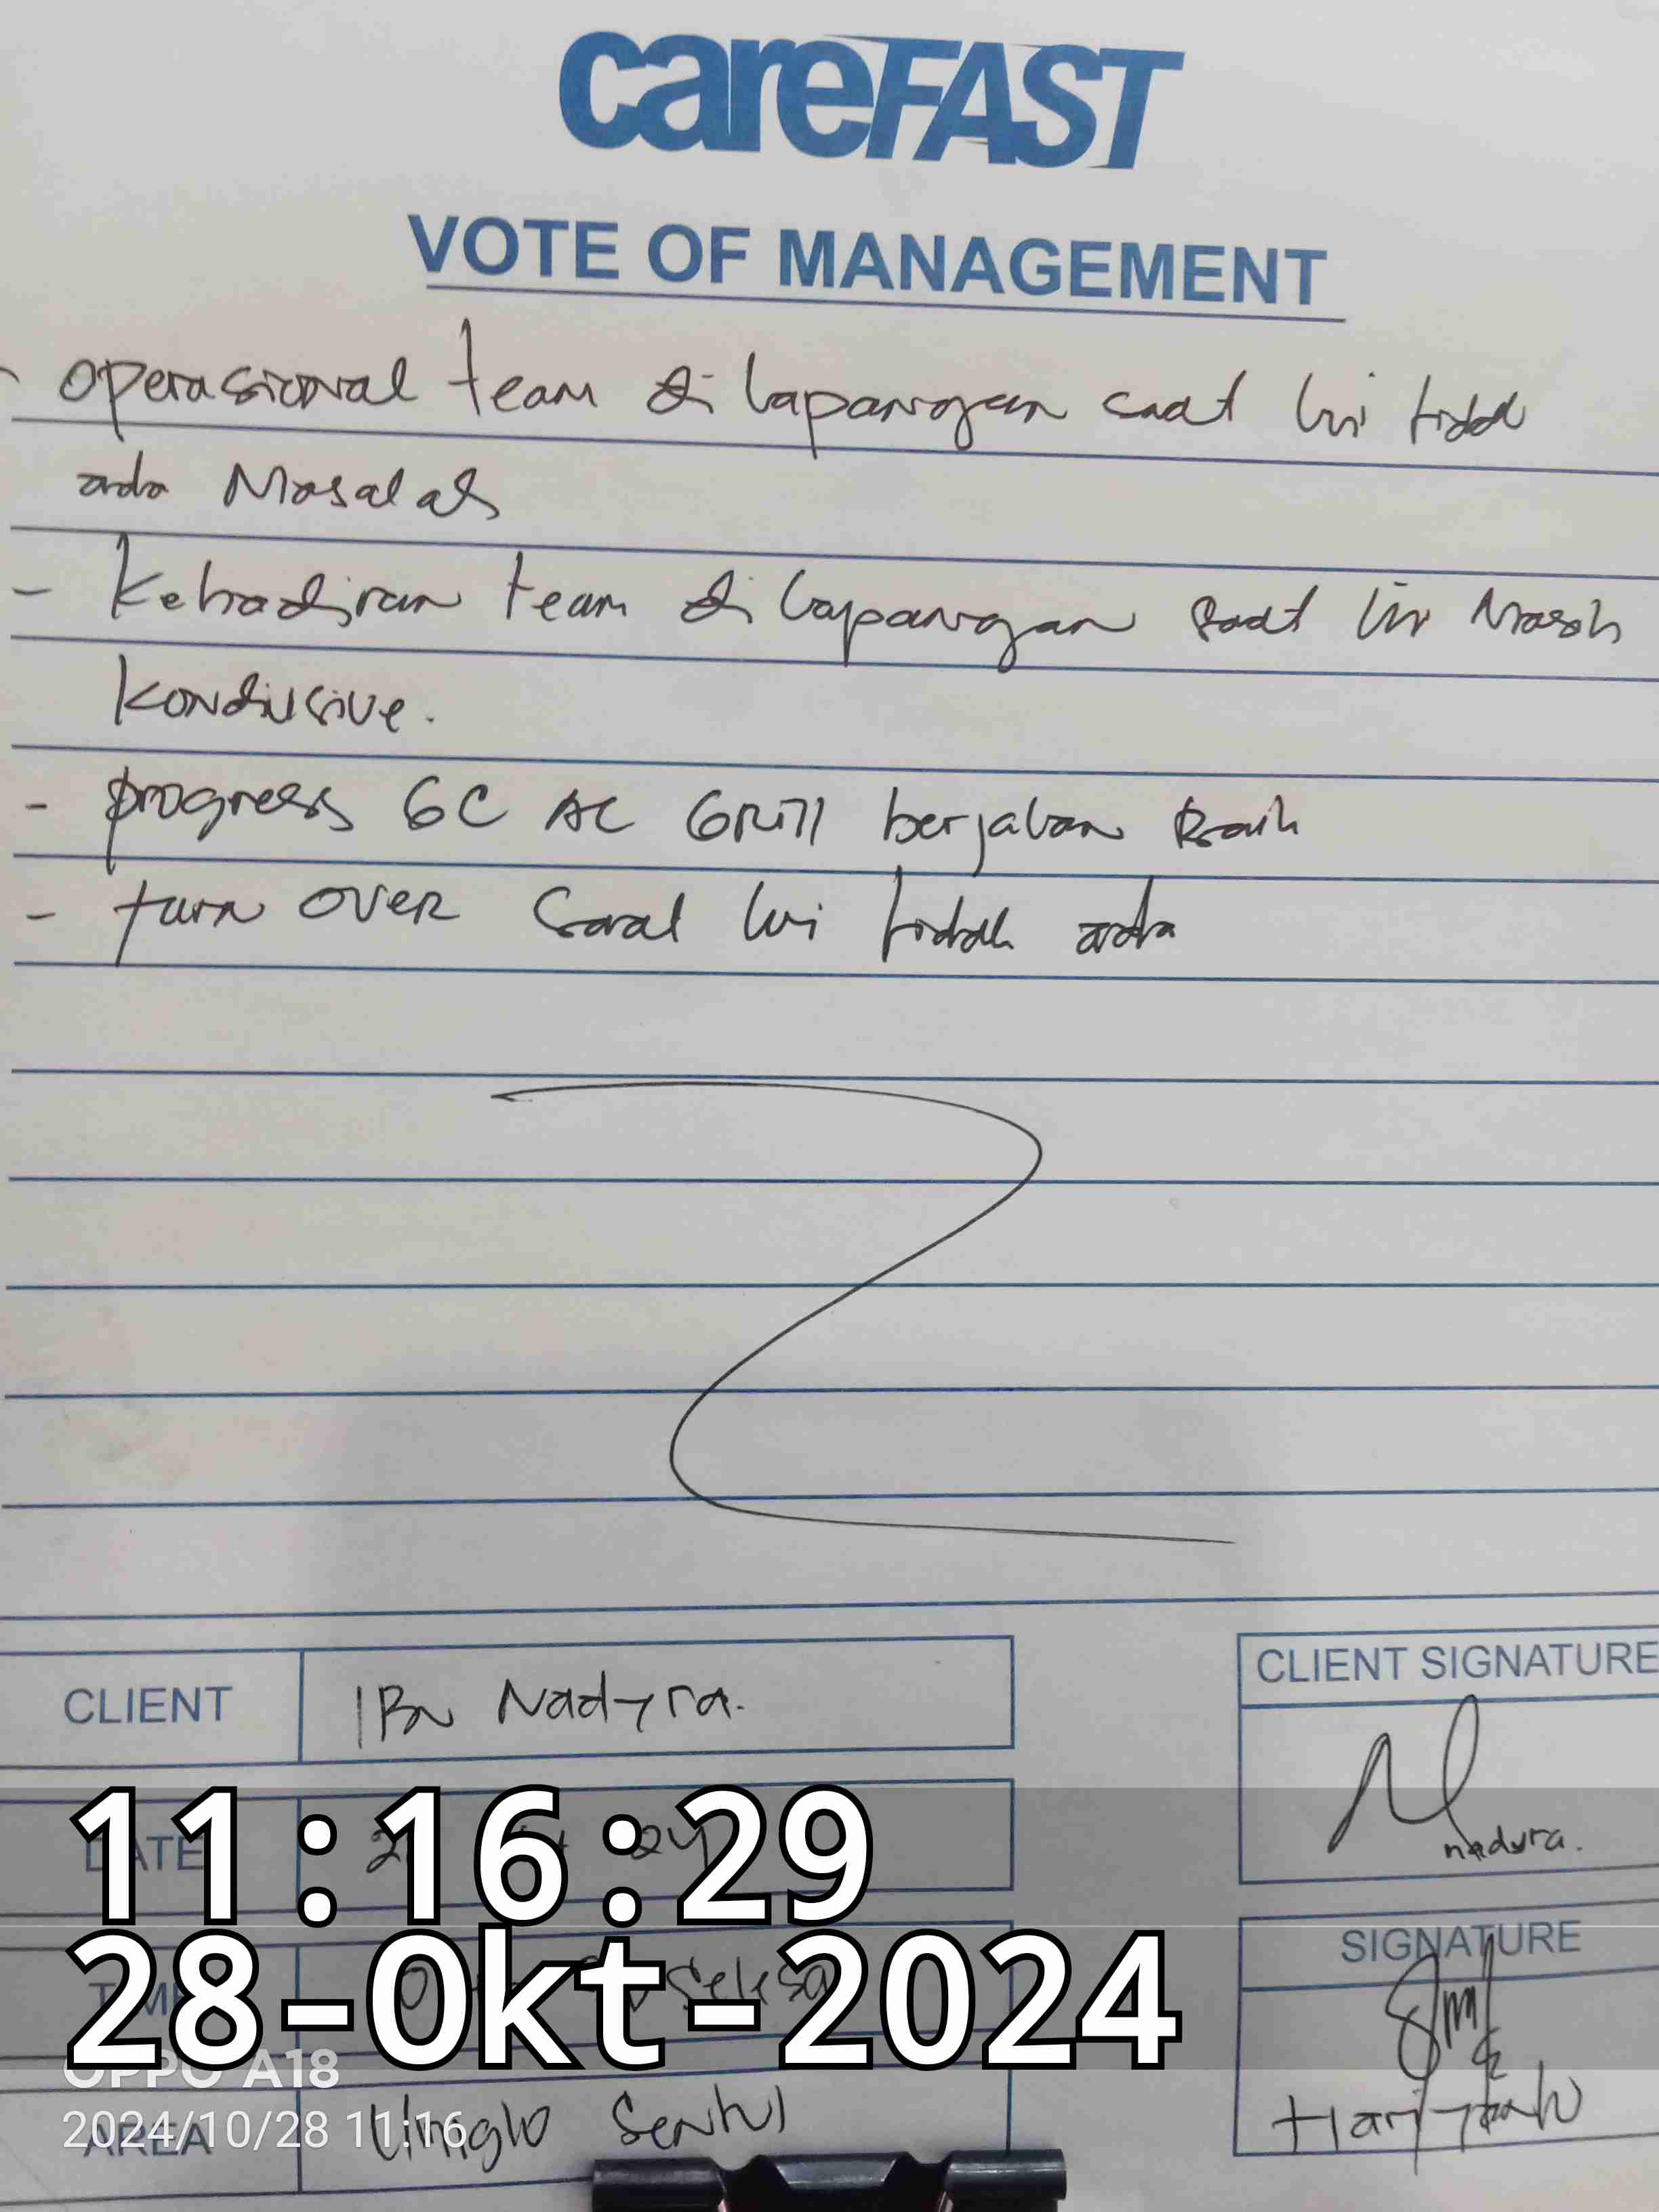 careFAST
VOTE OF MANAGEMENT
- operasional team di lapangan saat ini tidak
ada Masalah
- Kehadiran team di lapangan saat ini Masih
Kondusive.
- progress GC AC Grill berjalan baik
- turn over saat ini tidak ada
CLIENT
IBu Nadyra.
CLIENT SIGNATURE
nadyra.
DATE
11:16:29
SIGNATURE
TIME
28-Okt-2024
OPPO A18
2024/10/28 11:16
AREA
Uniqlo Sentul